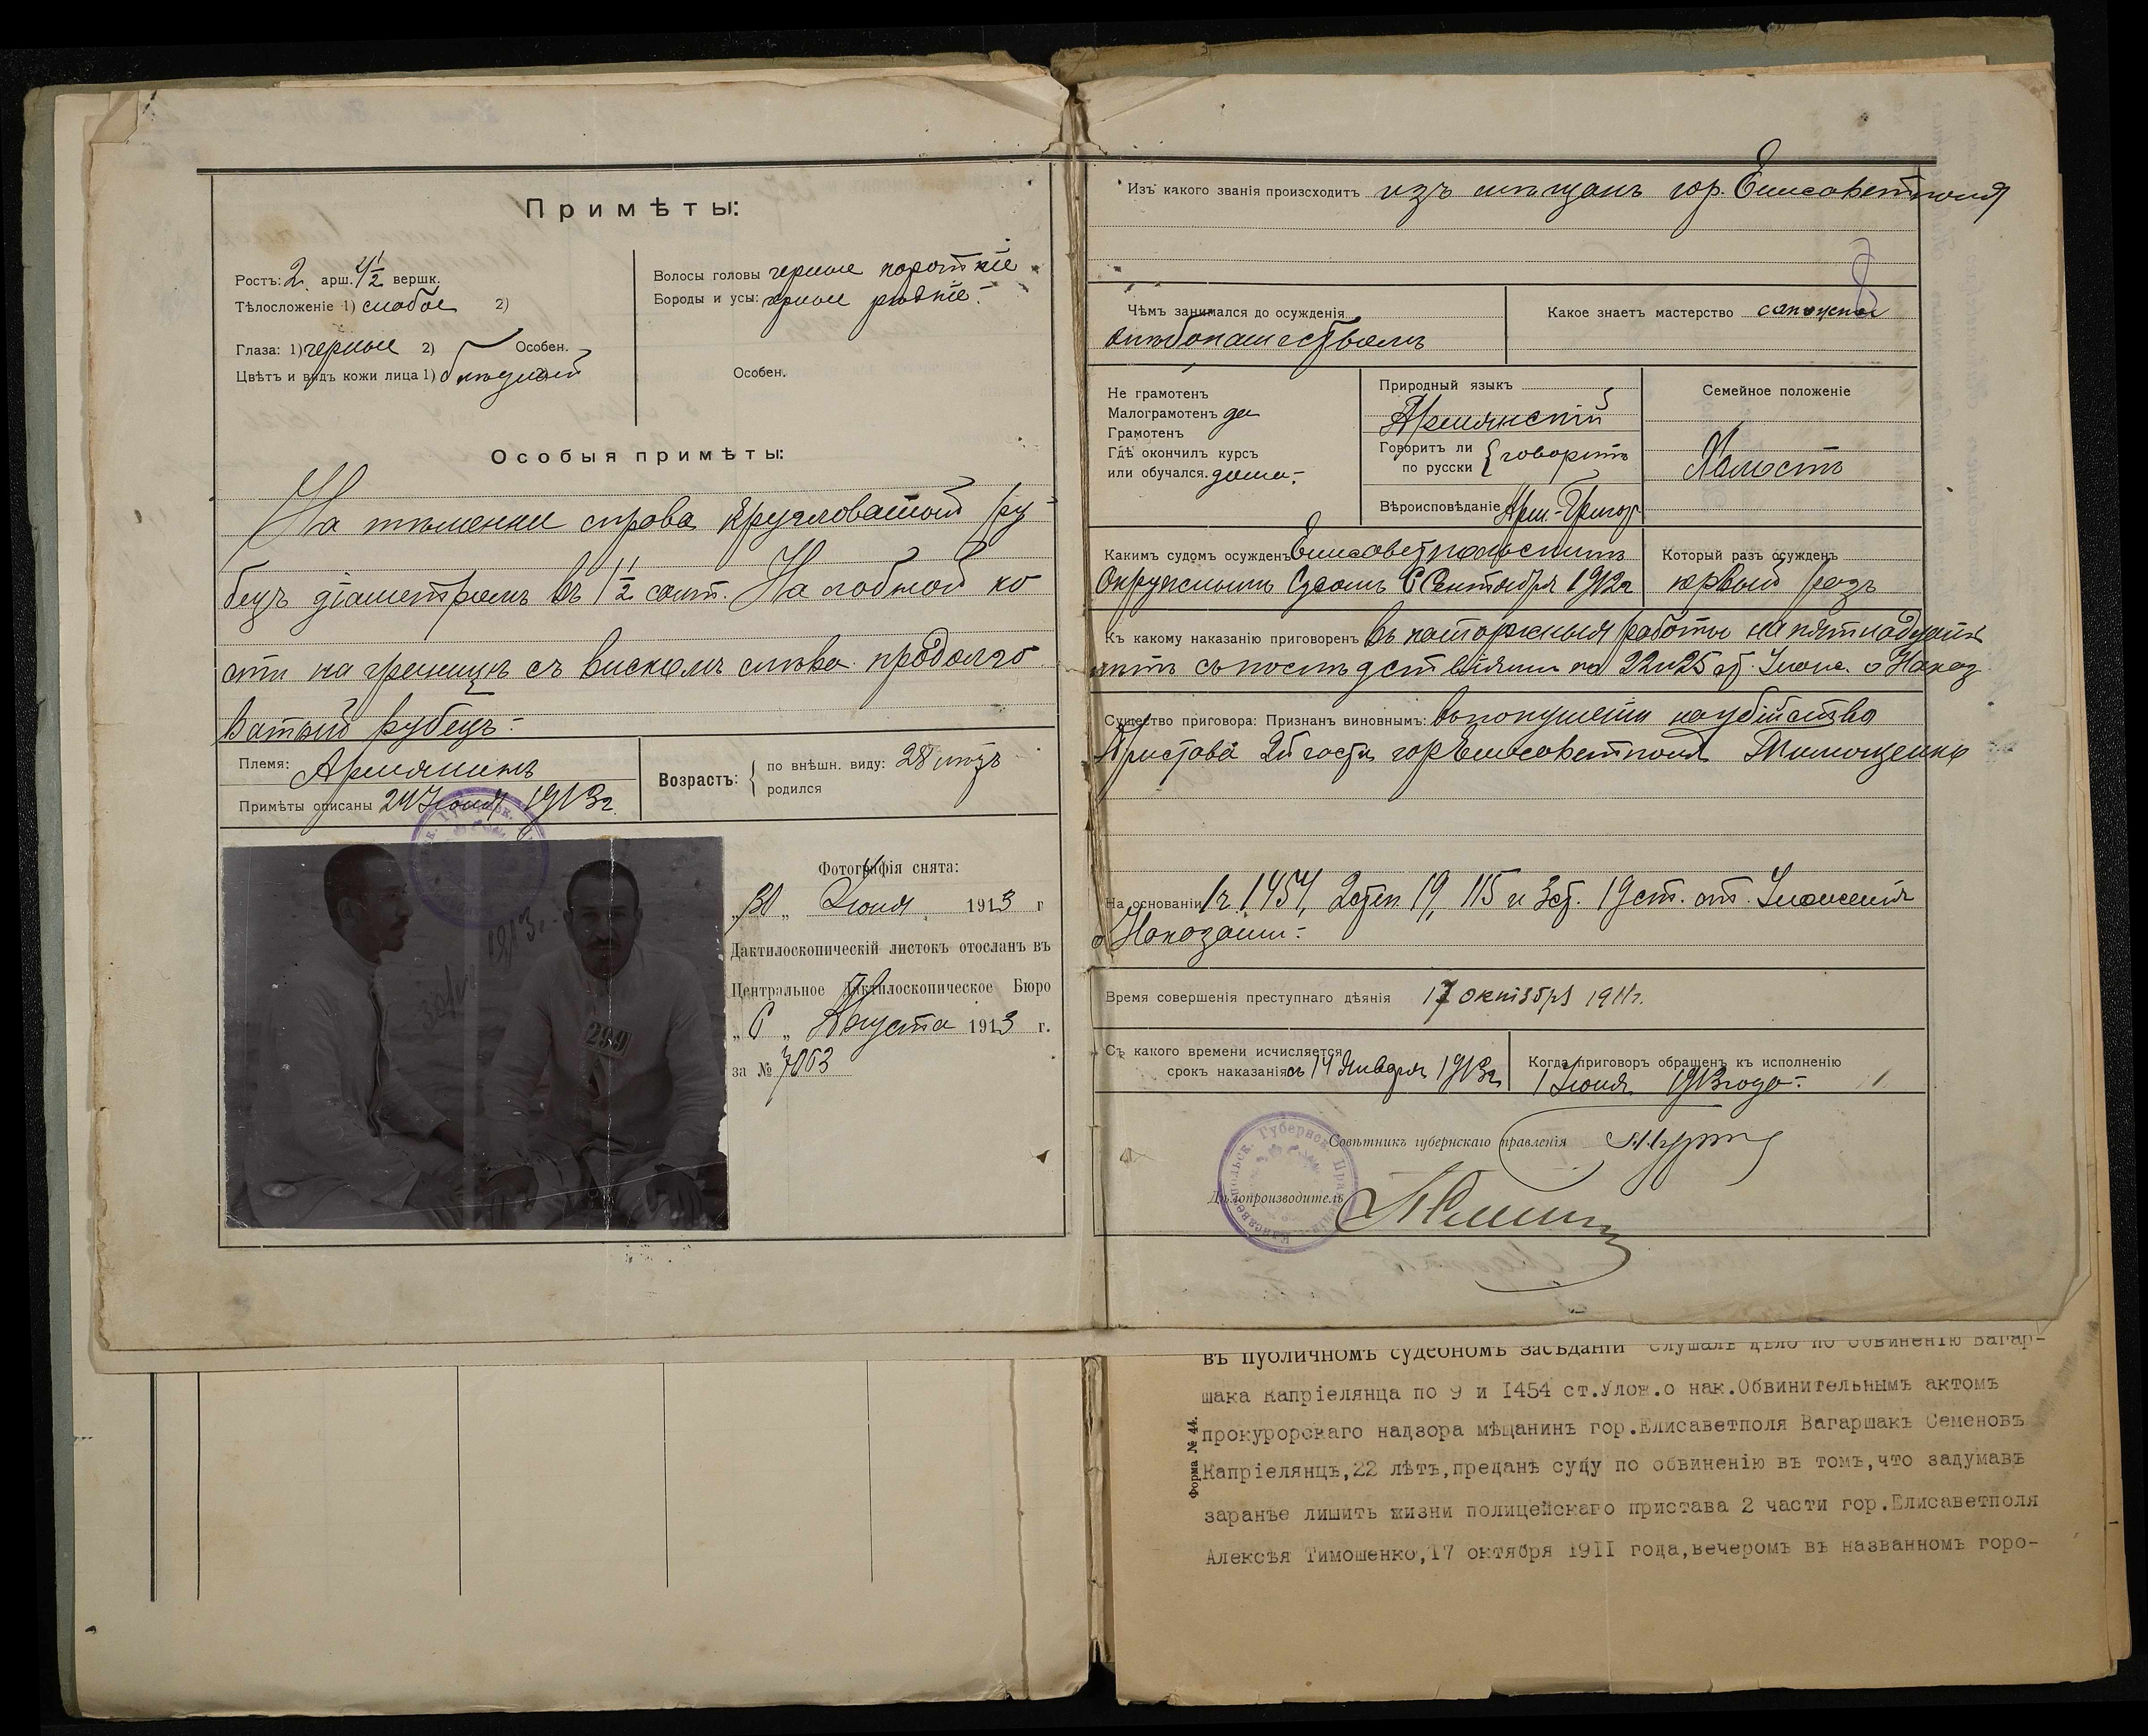 Примѣты:
Ростъ: 2 арш. 4½ вершк.
Тѣлосложеніе 1) слабое 2)
Глаза: 1) черные 2) Особен.
Цвѣтъ и видъ кожи лица 1) блѣдный
Волосы головы черные короткіе
Бороды и усы: черные рѣдкіе.
Особен.
Особыя примѣты:
На темени справа кругловатый ру-
бецъ діаметромъ въ 1½ сант. На лобной ко
сти на границѣ съ вискомъ слѣва продолго
ватый рубецъ.-
Племя: Армянинъ
Примѣты описаны 24 Іюня 1913г.
Возрастъ:
по внѣшн. виду: 28 лѣтъ
родился
Фотографія снята:
„30„ Іюня 1913 г
Дактилоскопическій листокъ отосланъ въ
Центральное Дактилоскопическое Бюро
„6„ Августа 1913 г.
за № 7063
1913г.
299
Изъ какого званія происходитъ изъ мѣщанъ гор. Елисаветполя
Чѣмъ занимался до осужденія
хлѣбопашествомъ
Какое знаетъ мастерство
Не грамотенъ
Малограмотенъ да
Грамотенъ
Гдѣ окончилъ курсъ
или обучался. дома.-
Природный языкъ
Армянскій
Говоритъ ли
по русски { говоритъ
Вѣроисповѣданіе Арм.-Григор.
Семейное положеніе
Холостъ
Какимъ судомъ осужденъ Елисаветпольскимъ
Окружнымъ Судомъ 6 Сентября 1912г
Который разъ осужденъ
первый разъ
Къ какому наказанію приговоренъ въ каторжныя работы на пятнадцать
лѣтъ съ послѣдствіями по 22 и 25 ст. Улож. о Наказ.
Существо приговора: Признанъ виновнымъ: въ покушеніи на убійство
Пристава 2й части гор Елисаветполя Тимошенко
На основаніи 1ч. 1454, 2 степ 19, 115 и 3 ст. 19 ст. Уложенія
о Наказаніи.-
Время совершенія преступнаго дѣянія 17 октября 1911г.
Съ какого времени исчисляется
срокъ наказанія съ 14 Января 1913г
Когда приговоръ обращенъ къ исполненію
1 Іюня 1913 года.-
Совѣтникъ губернскаго правленія
Дѣлопроизводитель
Елисаветпольск. Губернск. Правленія
въ публичномъ судебномъ засѣданіи слушалъ дѣло по обвиненію Вагар-
шака Капріелянца по 9 и 1454 ст.Улож.о нак.Обвинительнымъ актомъ
прокурорскаго надзора мѣщанинъ гор.Елисаветполя Вагаршакъ Семеновъ
Капріелянцъ,22 лѣтъ,преданъ суду по обвиненію въ томъ,что задумавъ
заранѣе лишить жизни полицейскаго пристава 2 части гор.Елисаветполя
Алексѣя Тимошенко,17 октября 1911 года,вечеромъ въ названномъ горо-
Форма № 44.